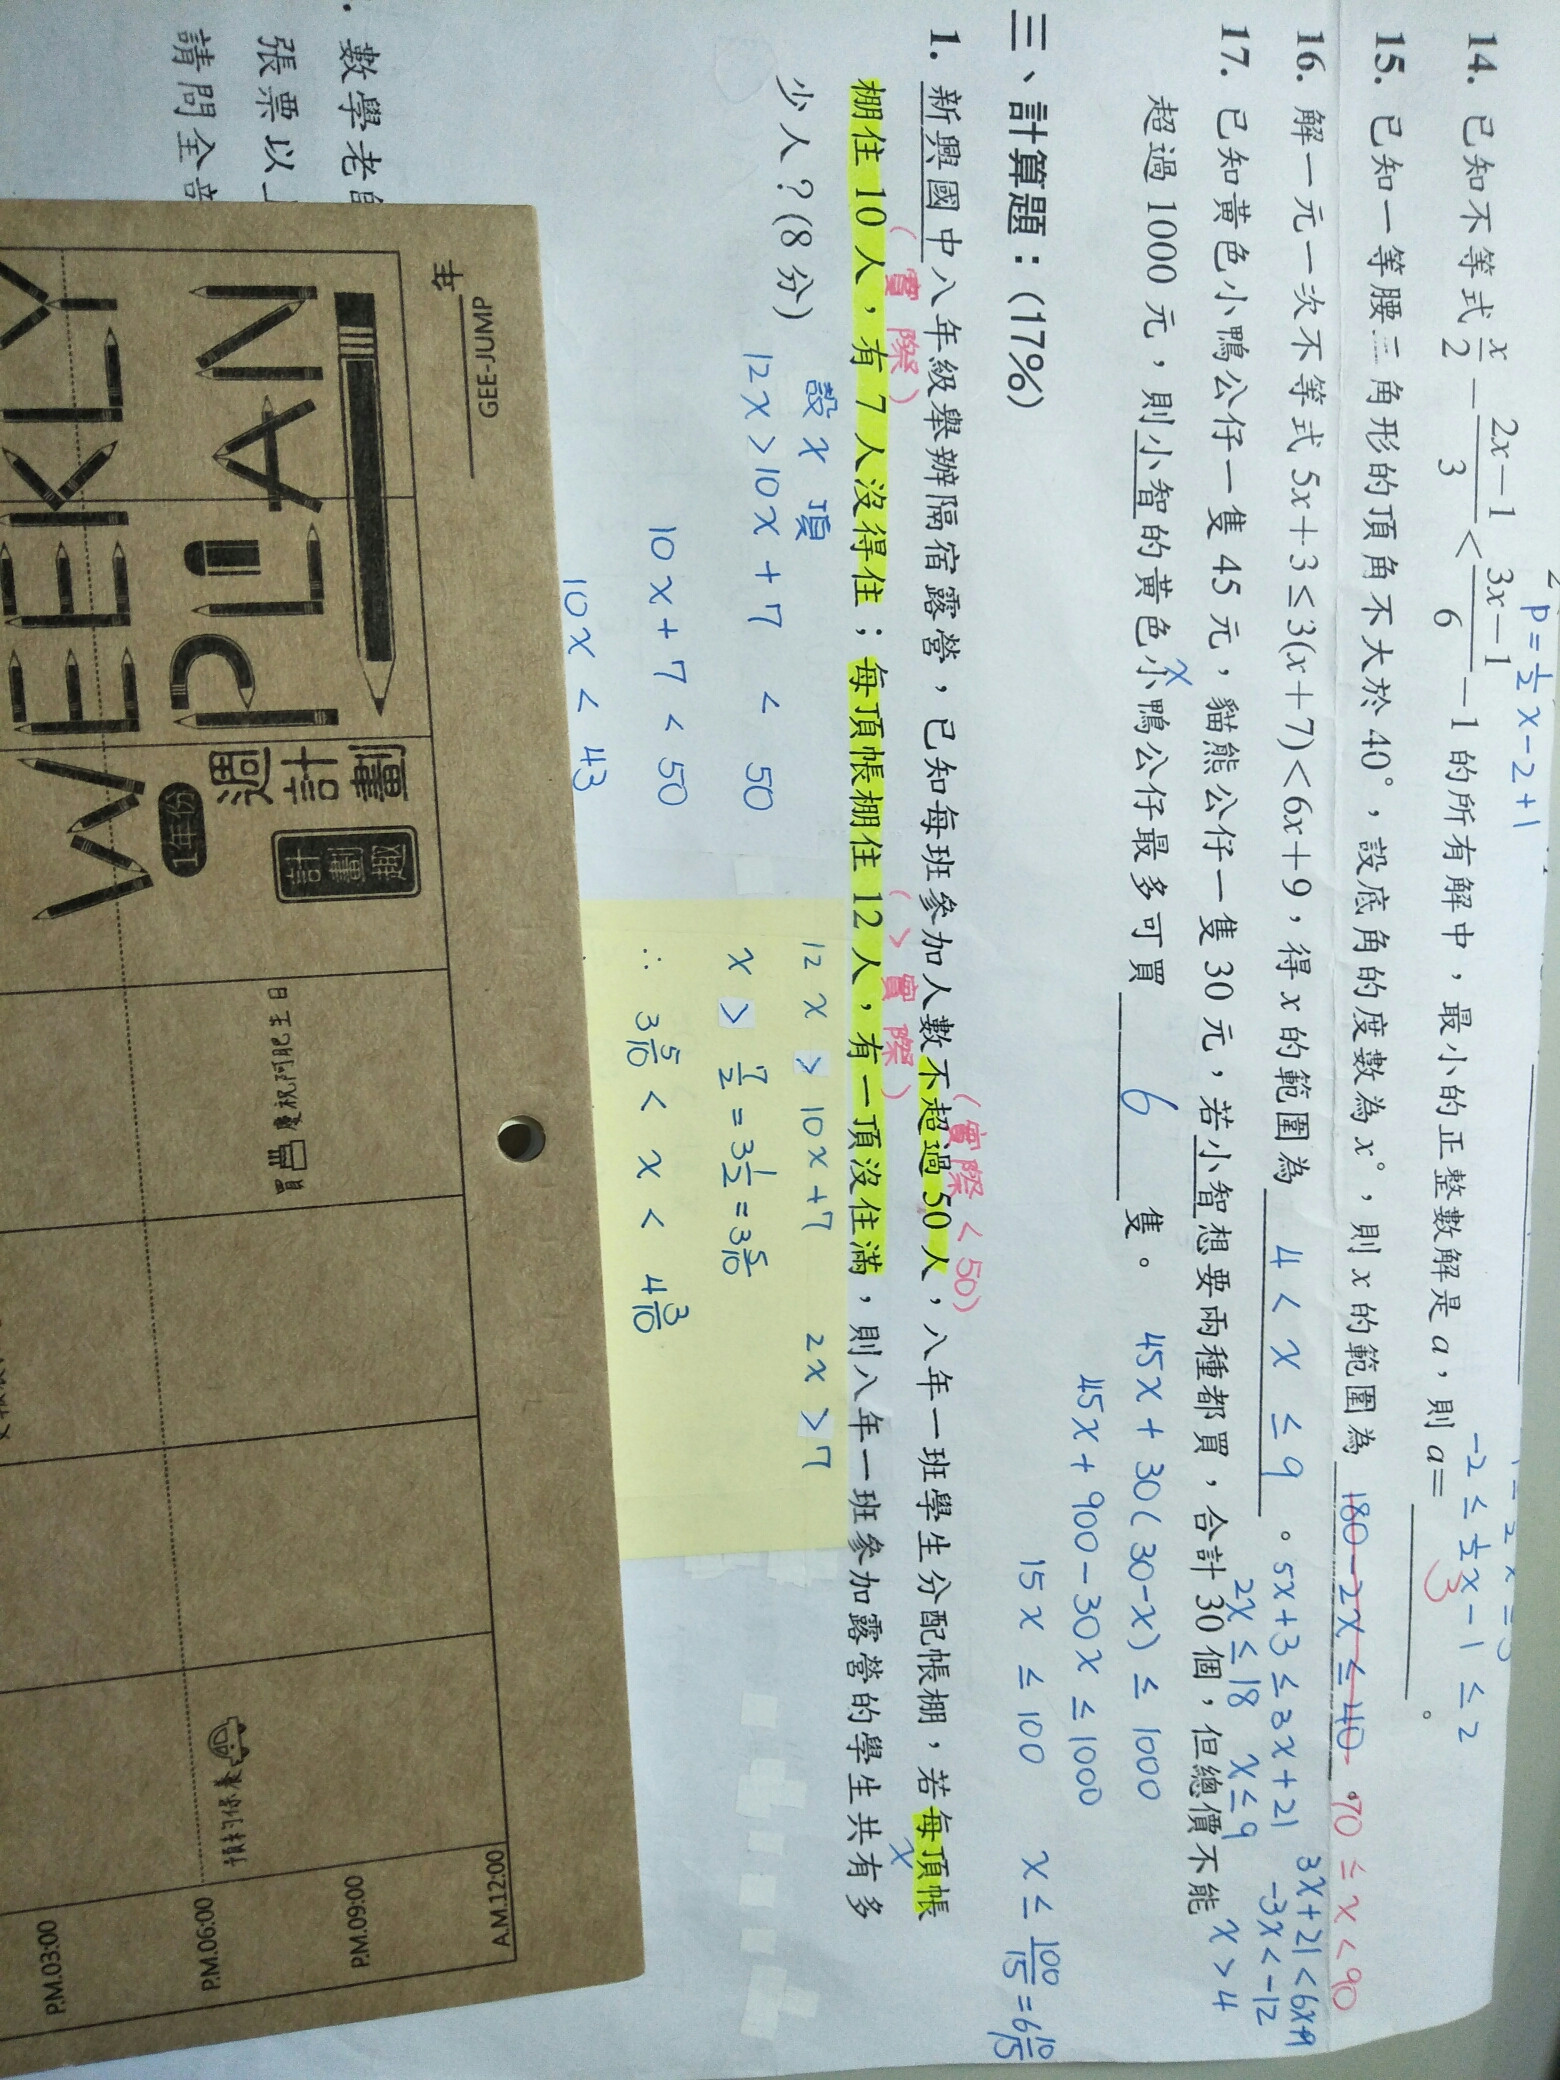 p=½x-2+1
-2≤½x-1≤2
14. 已知不等式 x/2 - (2x-1)/3 < (3x-1)/6 - 1 的所有解中，最小的正整數解是 a，則 a= 3 。
15. 已知一等腰三角形的頂角不大於 40°，設底角的度數為 x°，則 x 的範圍為 180-2x≤40 70≤x<90
16. 解一元一次不等式 5x+3≤3(x+7)<6x+9，得 x 的範圍為 4<x≤9 。
5x+3≤3x+21
2x≤18 x≤9
3x+21<6x+9
-3x<-12
x>4
17. 已知黃色小鴨公仔一隻 45 元，貓熊公仔一隻 30 元，若小智想要兩種都買，合計 30 個，但總價不能
超過 1000 元，則小智的黃色小鴨公仔最多可買 6 隻。
x
45x+30(30-x)≤1000
45x+900-30x≤1000
15x≤100
x≤100/15=6 10/15
三、計算題：(17%)
(實際<50)
1. 新興國中八年級舉辦隔宿露營，已知每班參加人數不超過 50 人，八年一班學生分配帳棚，若每頂帳
(實際) (>實際) x
棚住 10 人，有 7 人沒得住；每頂帳棚住 12 人，有一頂沒住滿，則八年一班參加露營的學生共有多
少人？(8 分)
設 x 頂
12x>10x+7<50
10x+7<50
10x<43
12x>10x+7 2x>7
x>7/2=3 1/2=3 5/10
∴ 3 5/10<x<4 3/10
數學老
張票以
請問全
GEE-JUMP
年
WEEKLY
PLAN
週計劃
1年份
計劃趣
慶祝阿肥生日
預約保養
A.M.12:00
P.M.09:00
P.M.06:00
P.M.03:00